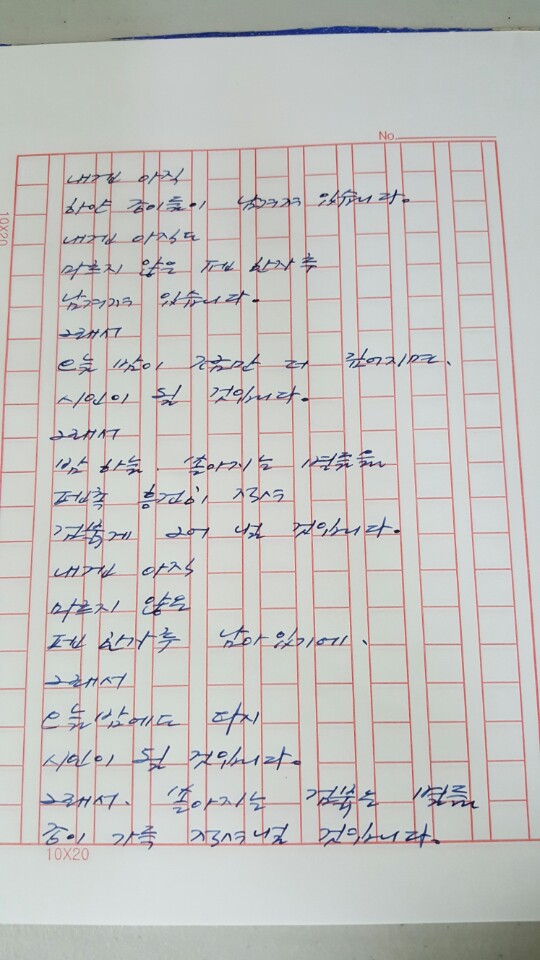 No.
내겐 아직
하얀 종이들이 남겨져 있습니다.
내겐 아직도
마르지 않은 펜 한자루
남겨져 있습니다.
그래서
오늘 밤이 조금만 더 깊어지면,
시인이 될 것입니다.
그래서
밤 하늘, 쏟아지는 별들을
펜촉 흥건히 적셔
검붉게 그어 낼 것입니다.
내겐 아직
마르지 않은
펜 한자루 남아있기에,
그래서
오늘밤에도 다시
시인이 될 것입니다.
그래서, 쏟아지는 검붉은 별들
종이 가득 적셔낼 것입니다.
10X20
10X20